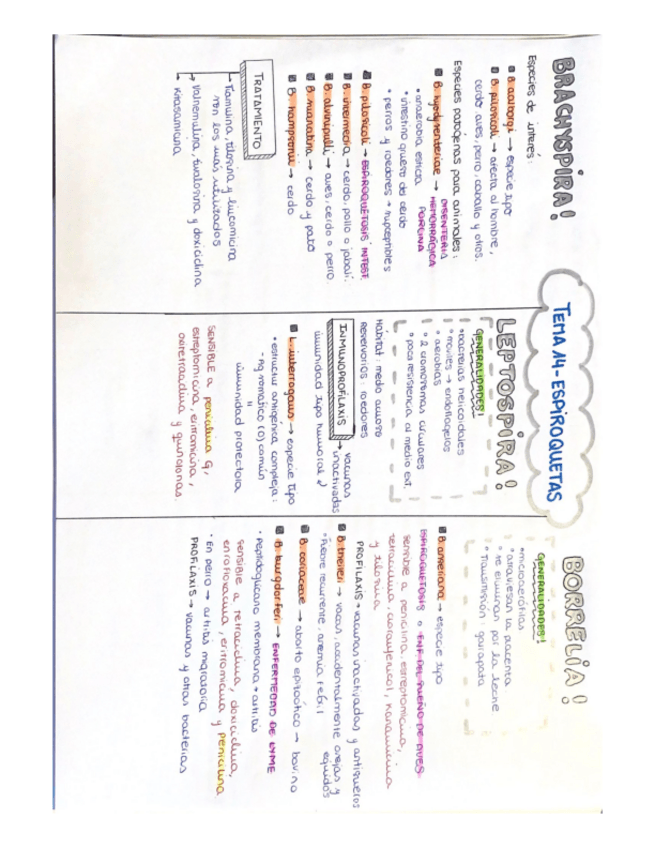 TEMA 14- ESPIROQUETAS
BRACHYSPIRA!
Especies de interés:
B. aalborgi → especie tipo
B. pilosicoli → afecta al hombre,
cerdo aves, perro, caballo y otros.
Especies patógenas para animales:
B. hyodysenteriae → DISENTERIA
HEMORRÁGICA
PORCINA
anaerobia estricta
intestino grueso del cerdo
perros y roedores → susceptibles
B. pilosicoli → ESPIROQUETOSIS INTEST.
B. intermedia → cerdo, pollo o jabalí.
B. alvinipulli → aves, cerdo o perro
B. murdochii → cerdo y pato
B. hampsonii → cerdo
TRATAMIENTO
Tiamulina, tilosina y lincomicina
son los más utilizados
Valnemulina, tivalosina y doxiciclina
Kitasamicina
LEPTOSPIRA!
GENERALIDADES!
bacterias helicoidales
móviles → endoflagelos
aerobias
2 cromosomas circulares
poca resistencia al medio ext.
Hábitat: medio acuoso
Reservorios: roedores
INMUNOPROFILAXIS → vacunas
inactivadas
inmunidad tipo humoral
L. interrogans → especie tipo
estructura antigénica compleja:
- Ag somático (O) común
"
inmunidad protectora
SENSIBLE a penicilina G,
estreptomicina, eritromicina,
oxitetraciclina y quinolonas.
BORRELIA!
GENERALIDADES!
microaerófilas
atraviesan la placenta
se eliminan por la leche
Transmisión: garrapata
B. anserina → especie tipo
ESPIROQUETOSIS o ENF DEL SUEÑO DE AVES
Sensible a penicilina, estreptomicina,
tetraciclina, cloranfenicol, kanamicina
y tilosina
PROFILAXIS → vacunas inactivadas y antisueros
B. theileri → vacas, accidentalmente ovejas y
équidos
Fiebre recurrente, anemia febril
B. coriaceae → aborto epizoótico → bovino
B. burgdorferi → ENFERMEDAD DE LYME
Peptidoglicano membrana → artritis
SENSIBLE a tetraciclina, doxiciclina,
enrofloxacina, eritromicina y penicilina
En perro → artritis migratoria
PROFILAXIS → vacunas y otras bacterias